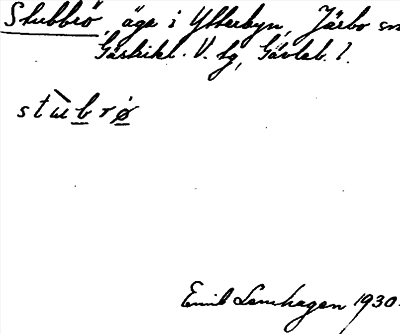 Stubbrö, äga i Ytterbyn, Järbo sn
Gästrikl. V. hg, Gävleb. l.
stùbrö
Emil Lemhagen 1930.